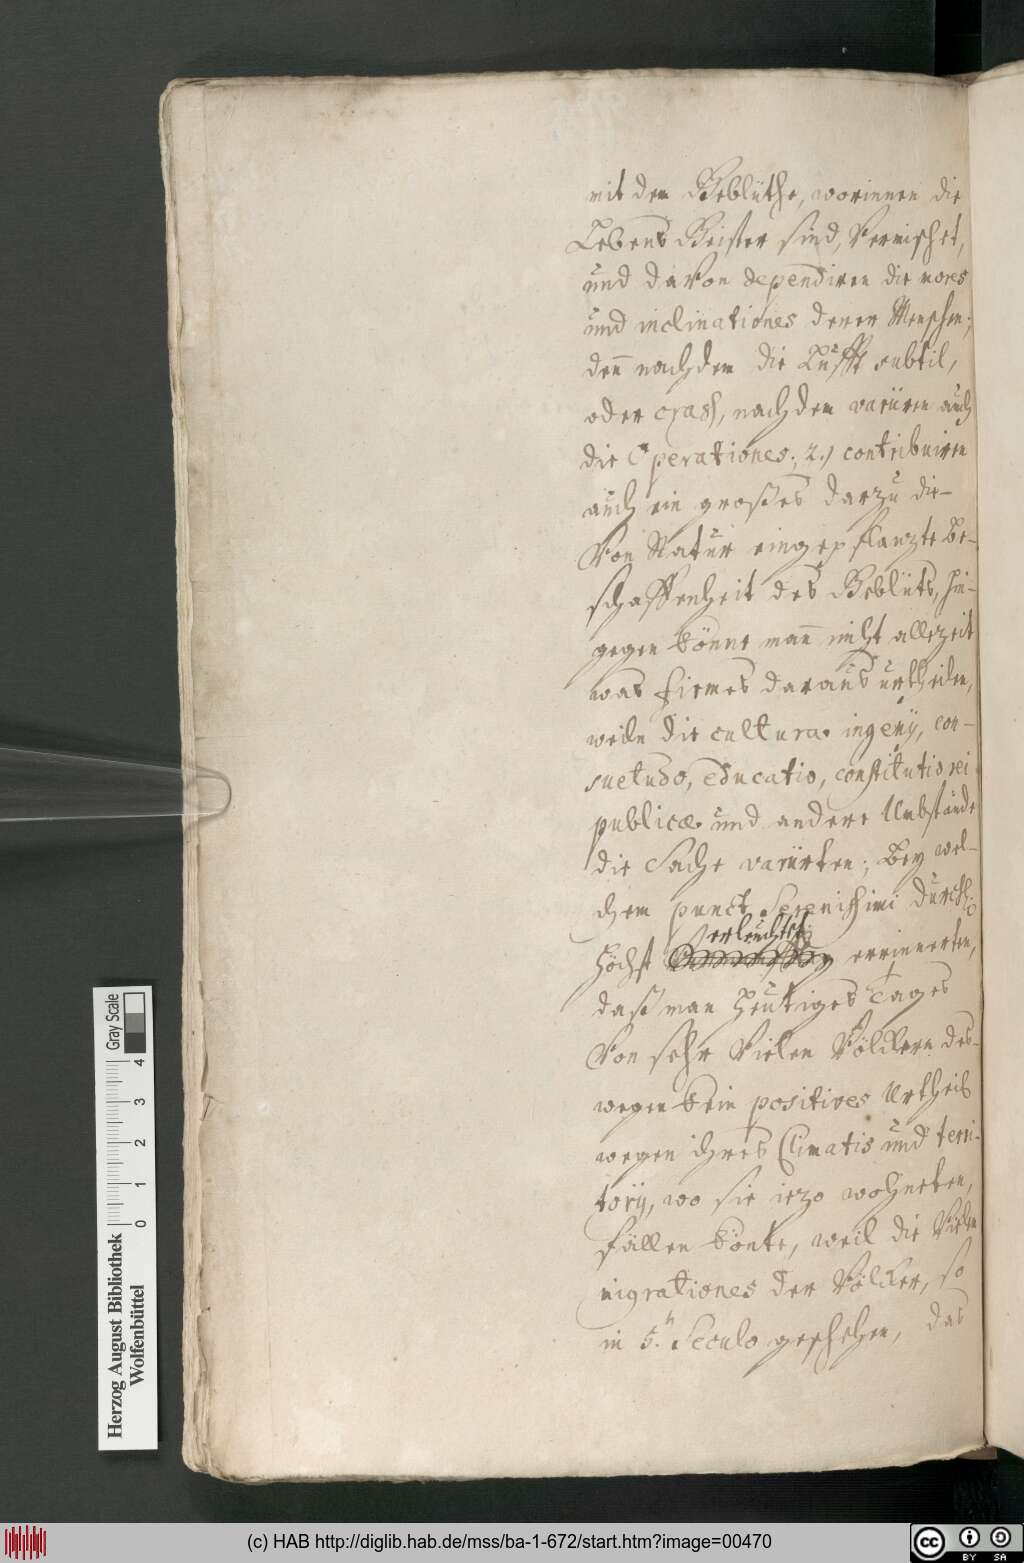 mit dem Geblüthe, worinnen die
Lebens Geister sind, Vermischet,
und davon dependiren die mores
und inclinationes derer Menschen;
den̄ nachdem die Lufft subtil,
oder crass, nachdem variiren auch
die Operationes; 2.) contribuiren
auch ein großes darzu die
Von Natur eingepflanzte Be-
schaffenheit des Geblüts, hin-
gegen könne man̄ nicht allezeit
was firmes daraus urtheilen,
weiln die cultura ingenij, con-
suetudo, educatio, constitutio rei
publicæ und andere Umbstände
die Sache variirten; Bey wel-
chem punct Serenissimi Durchl:
erleuchtet
Höchst errinnerten,
daß man heutiges Tages
Von sehr Vielen Völckern des-
wegen kein positives Urtheil
wegen ihres Climatis und terri-
torij, wo sie iezo wohneten,
fällen könte, weil die Vielen
migrationes der Völcker, so
in 5.n Seculo geschehen, das
Herzog August Bibliothek
Wolfenbüttel
0 1 2 3 4
Gray Scale
(c) HAB http://diglib.hab.de/mss/ba-1-672/start.htm?image=00470
cc BY SA